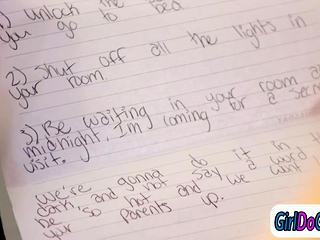 1) Unlock the
you go to bed
2) Shut off all the lights in
your room
3) Be waiting in your room at
midnight. I'm coming for a
visit.
We're gonna do it in
dark, and not say a word
be so hot and we
your parents up.
GirlDo